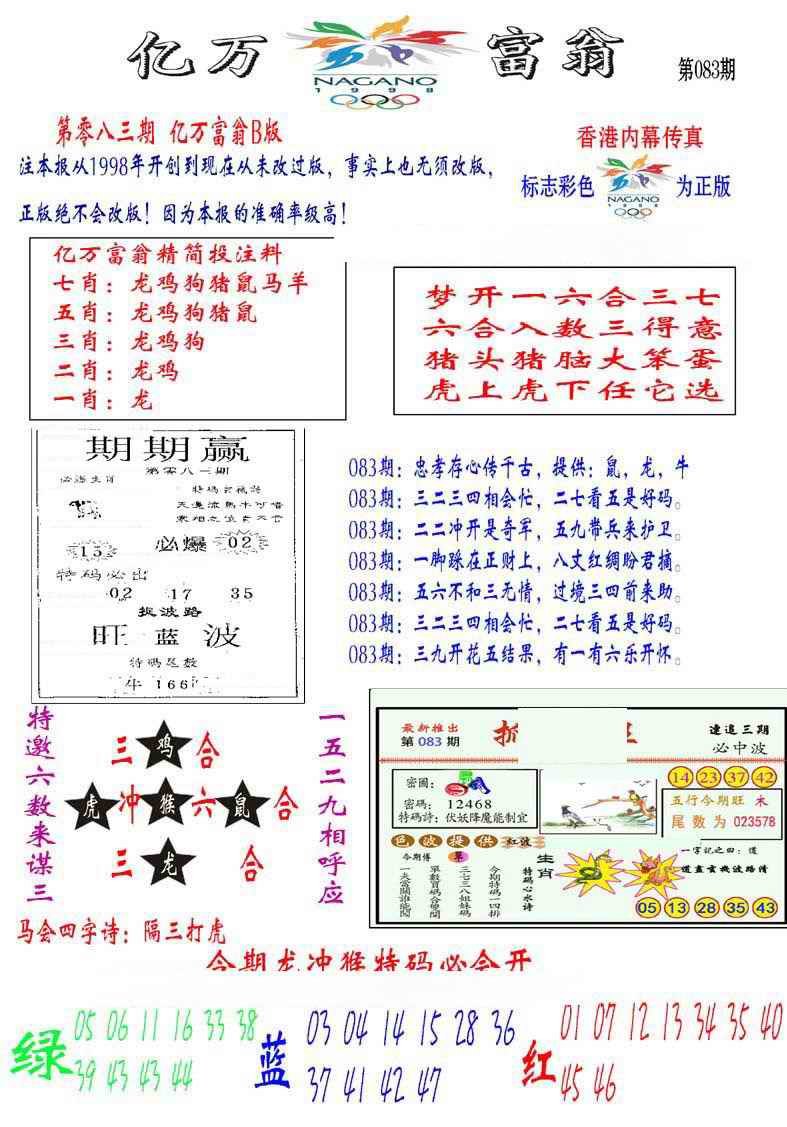 亿万
NAGANO
1998
富翁
第083期
第零八三期 亿万富翁B版
香港内幕传真
注本报从1998年开创到现在从未改过版，事实上也无须改版，
标志彩色
NAGANO
1998
为正版
正版绝不会改版！因为本报的准确率级高！
亿万富翁精简投注料
七肖：龙鸡狗猪鼠马羊
五肖：龙鸡狗猪鼠
三肖：龙鸡狗
二肖：龙鸡
一肖：龙
梦开一六合三七
六合入数三得意
猪头猪脑大笨蛋
虎上虎下任它选
期期赢
第零八三期
必爆
15
02
特码必出
02 17 35
捉波路
旺 蓝 波
特码尾数
牛 166
083期：忠孝存心传千古，提供：鼠，龙，牛
083期：三二三四相会忙，二七看五是好码。
083期：二二冲开是奇军，五九带兵来护卫。
083期：一脚踩在正财上，八丈红绸盼君摘。
083期：五六不和三无情，过境三四前来助。
083期：三二三四相会忙，二七看五是好码。
083期：三九开花五结果，有一有六乐开怀。
特邀六数来谋三
三 鸡 合
虎 冲 猴 六 鼠 合
三 龙 合
一五二九相呼应
马会四字诗：隔三打虎
最新推出
第 083 期
連追三期
必中波
密圖：
密碼： 12468
特碼詩：伏妖降魔能制宜
14 23 37 42
五行今期旺 木
尾数为 023578
色波提供 红波
今期傳
單
一夫當關誰能闖
單數買碼合雙開
三七三八姐妹碼
今期特碼一四排
特碼心水诗
生肖
一字記之曰：道
道盡玄機波路清
05 13 28 35 43
今期龙冲猴特码必会开
绿
05 06 11 16 33 38
39 43 43 44
蓝
03 04 14 15 28 36
37 41 42 47
红
01 07 12 13 34 35 40
45 46